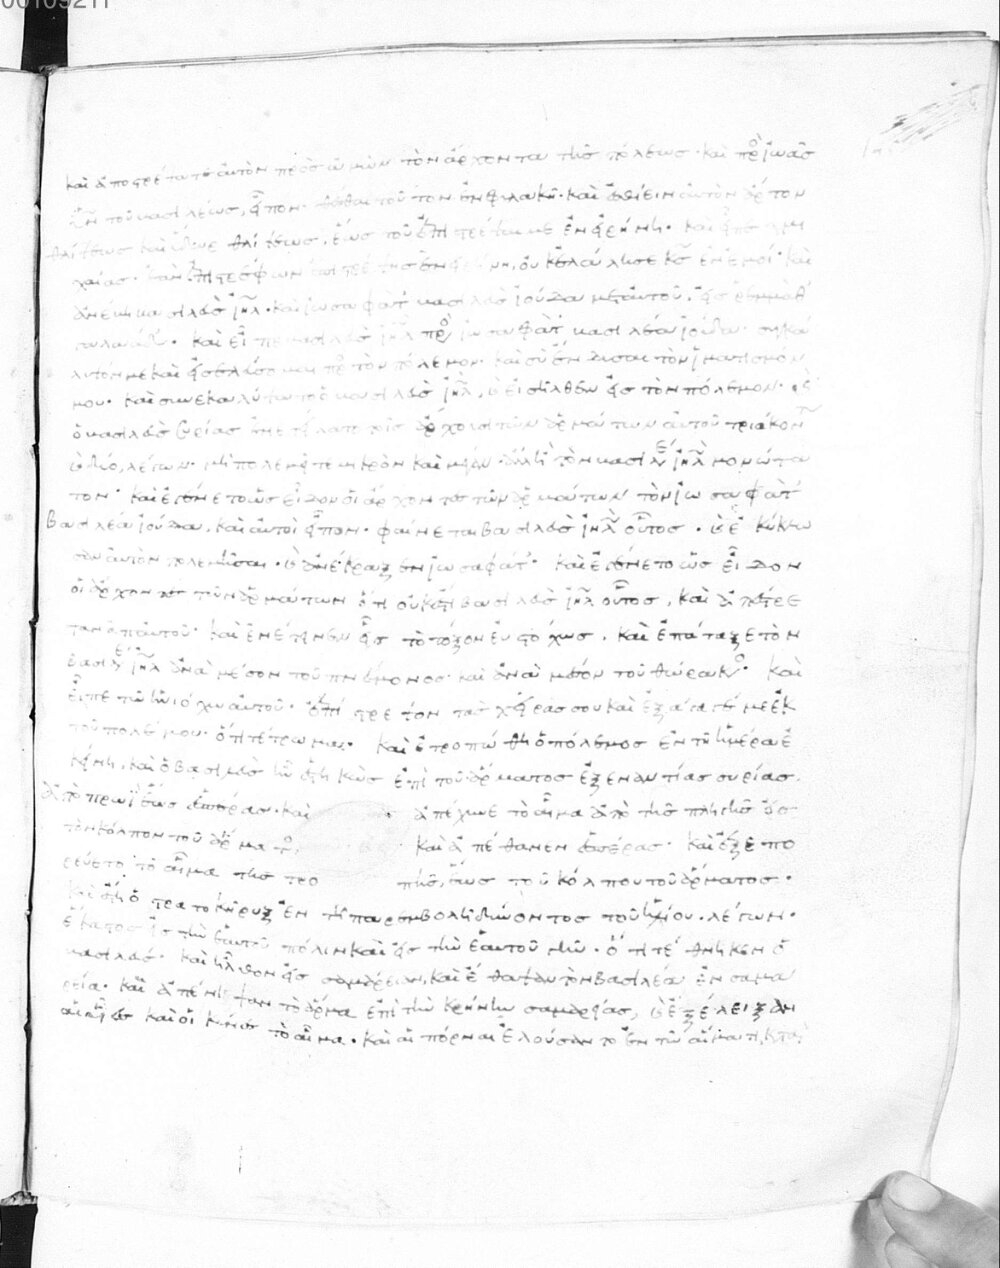 00109211
καὶ ἀποστρέψατε αὐτὸν πρὸς ἀμὼν τὸν ἄρχοντα τῆς πόλεως· καὶ πρὸ ἰωὰς
υἱὸν τοῦ βασιλέως, εἶπον· θέσθαι τοῦτον ἐν φυλακῆ· καὶ ἐσθίειν αὐτὸν ἄρτον
θλίψεως καὶ ὕδωρ θλίψεως, ἕως τοῦ ἐπιστρέψαι με ἐν εἰρήνη· καὶ εἶπε μι
χαίας· ἐὰν ἐπιστρέφων ἐπιστρέψης ἐν εἰρήνη, οὐκ ἐλάλησε κς ἐν ἐμοί· καὶ
ἀνέβη βασιλεὺς ἰηλ· καὶ ἰωσαφὰτ βασιλεὺς ἰούδα μετ αὐτοῦ, εἰς ῥεμμὰθ
γαλαάδ· καὶ εἶπε βασιλεὺς ἰηλ πρὸ ἰωσαφὰτ βασιλέα ἰούδα· συγκα
λυψόν με καὶ εἰσελεύσομαι πρὸ τὸν πόλεμον· καὶ σὺ ἔνδυσαι τὸν ἱματισμόν
μου· καὶ συνεκαλύψατο ὁ βασιλεὺς ἰηλ, καὶ εἰσῆλθεν εἰς τὸν πόλεμον· καὶ
ὁ βασιλεὺς συρίας ἐνετείλατο τοῖς ἄρχουσι τῶν ἁρμάτων αὐτοῦ τριάκοντα
δύο, λέγων· μὴ πολεμεῖτε μικρὸν καὶ μέγαν· ἀλλ ἢ τὸν βασιλέα ἰηλ μονώτα
τον· καὶ ἐγένετο ὡς εἶδον οἱ ἄρχοντες τῶν ἁρμάτων τὸν ἰωσαφὰτ
βασιλέα ἰούδα, καὶ αὐτοὶ εἶπον· φαίνεται βασιλεὺς ἰηλ οὗτος· καὶ ἐκύκλω
σαν αὐτὸν πολεμῆσαι· καὶ ἀνέκραξεν ἰωσαφάτ· καὶ ἐγένετο ὡς εἶδον
οἱ ἄρχοντες τῶν ἁρμάτων ὅτι οὐκ ἔστι βασιλεὺς ἰηλ οὗτος, καὶ ἀπέστρε
ψαν ἀπ αὐτοῦ· καὶ ἐνέτεινεν εἷς τὸ τόξον εὐστόχως. καὶ ἐπάταξε τὸν
βασιλέα ἰηλ ἀνὰ μέσον τοῦ πνεύμονος· καὶ ἀνὰ μέσον τοῦ θώρακος· καὶ
εἶπε τῶ ἡνιόχω αὐτοῦ· ἐπίστρεψον τὰς χεῖρας σου καὶ ἐξάγαγέ με ἐκ
τοῦ πολέμου· ὅτι τέτρωμαι· καὶ ἐτροπώθη ὁ πόλεμος ἐν τῆ ἡμέρα ἐ
κείνη, καὶ ὁ βασιλεὺς ἦν ἑστηκὼς ἐπὶ τοῦ ἅρματος ἐξεναντίας συρίας.
ἀπὸ πρωῒ ἕως ἑσπέρας· καὶ ἀπέχυνε τὸ αἷμα ἀπὸ τῆς πληγῆς εἰς
τὸν κόλπον τοῦ ἅρματος, καὶ ἀπέθανεν ἑσπέρας· καὶ ἐξεπο
ρεύετο τὸ αἷμα τῆς τρο πῆς, ἕως τοῦ κόλπου τοῦ ἅρματος·
καὶ ἔστη ὁ στρατοκῆρυξ ἐν τῆ παρεμβολῆ δύνοντος τοῦ ἡλίου· λέγων·
ἕκαστος εἰς τὴν ἑαυτοῦ πόλιν καὶ εἰς τὴν ἑαυτοῦ γῆν· ὅτι τέθνηκεν ὁ
βασιλεύς· καὶ ἦλθον εἰς σαμάρειαν, καὶ ἔθαψαν τὸν βασιλέα ἐν σαμα
ρεία· καὶ ἀπένιψαν τὸ ἅρμα ἐπὶ τὴν κρήνην σαμαρείας, καὶ ἐξέλειξαν
αἱ ὗες καὶ οἱ κύνες τὸ αἷμα· καὶ αἱ πόρναι ἐλούσαντο ἐν τῶ αἵματι, κατὰ